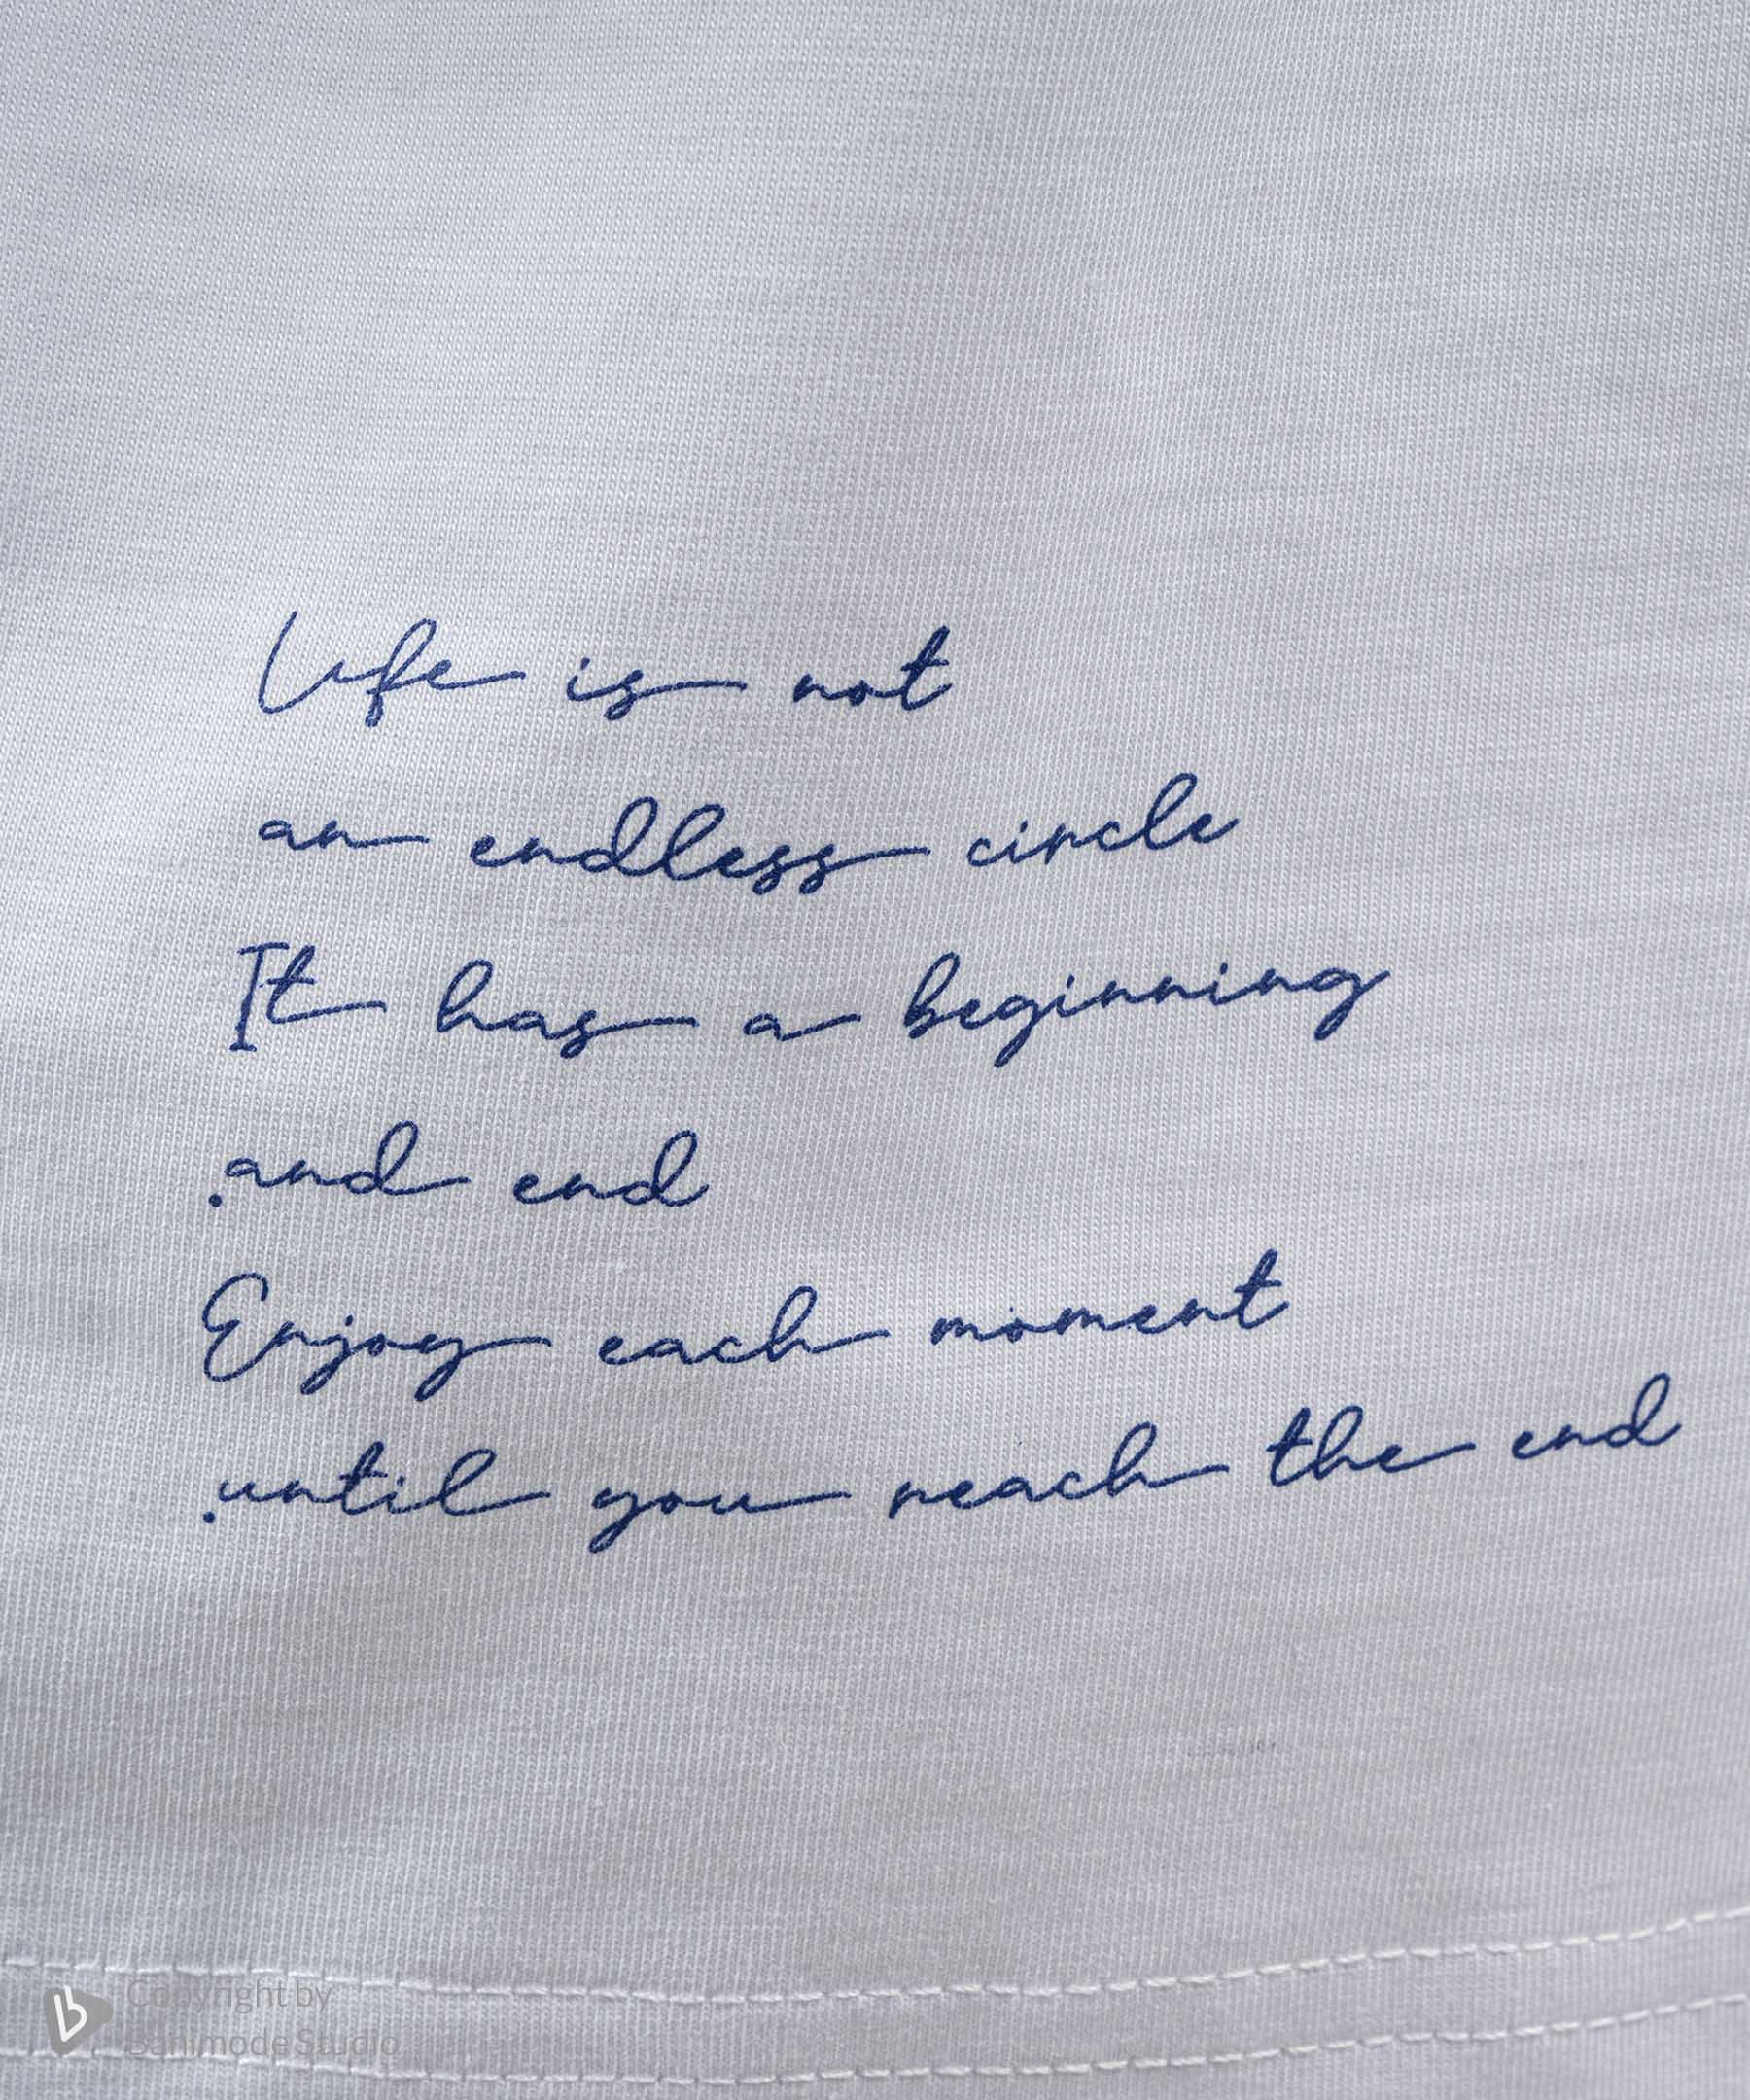 Life is not
an endless circle
It has a beginning
.and end
Enjoy each moment
.until you reach the end
Copyright by
Banimode Studio